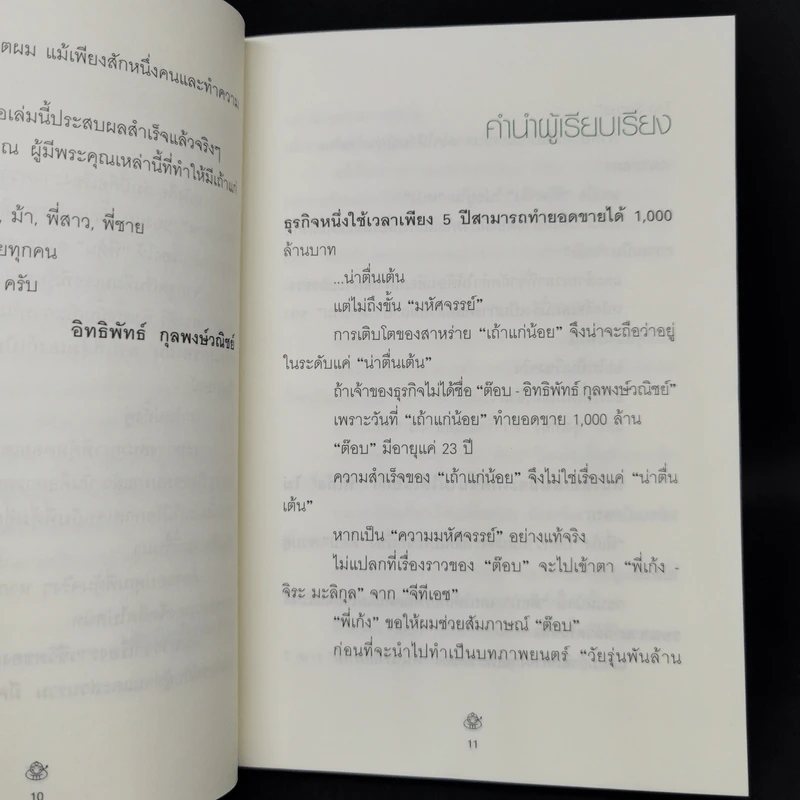 ตผม แม้เพียงสักหนึ่งคนและทำความ
อเล่มนี้ประสบผลสำเร็จแล้วจริงๆ
ณ ผู้มีพระคุณเหล่านี้ที่ทำให้มีเถ้าแก่
, ม้า, พี่สาว, พี่ชาย
ยทุกคน
ครับ
อิทธิพัทธ์ กุลพงษ์วณิชย์
10
คำนำผู้เรียบเรียง
ธุรกิจหนึ่งใช้เวลาเพียง 5 ปีสามารถทำยอดขายได้ 1,000
ล้านบาท
...น่าตื่นเต้น
แต่ไม่ถึงขั้น “มหัศจรรย์”
การเติบโตของสาหร่าย “เถ้าแก่น้อย” จึงน่าจะถือว่าอยู่
ในระดับแค่ “น่าตื่นเต้น”
ถ้าเจ้าของธุรกิจไม่ได้ชื่อ “ต๊อบ - อิทธิพัทธ์ กุลพงษ์วณิชย์”
เพราะวันที่ “เถ้าแก่น้อย” ทำยอดขาย 1,000 ล้าน
“ต๊อบ” มีอายุแค่ 23 ปี
ความสำเร็จของ “เถ้าแก่น้อย” จึงไม่ใช่เรื่องแค่ “น่าตื่น
เต้น”
หากเป็น “ความมหัศจรรย์” อย่างแท้จริง
ไม่แปลกที่เรื่องราวของ “ต๊อบ” จะไปเข้าตา “พี่เก้ง -
จิระ มะลิกุล” จาก “จีทีเอช”
“พี่เก้ง” ขอให้ผมช่วยสัมภาษณ์ “ต๊อบ”
ก่อนที่จะนำไปทำเป็นบทภาพยนตร์ “วัยรุ่นพันล้าน
11